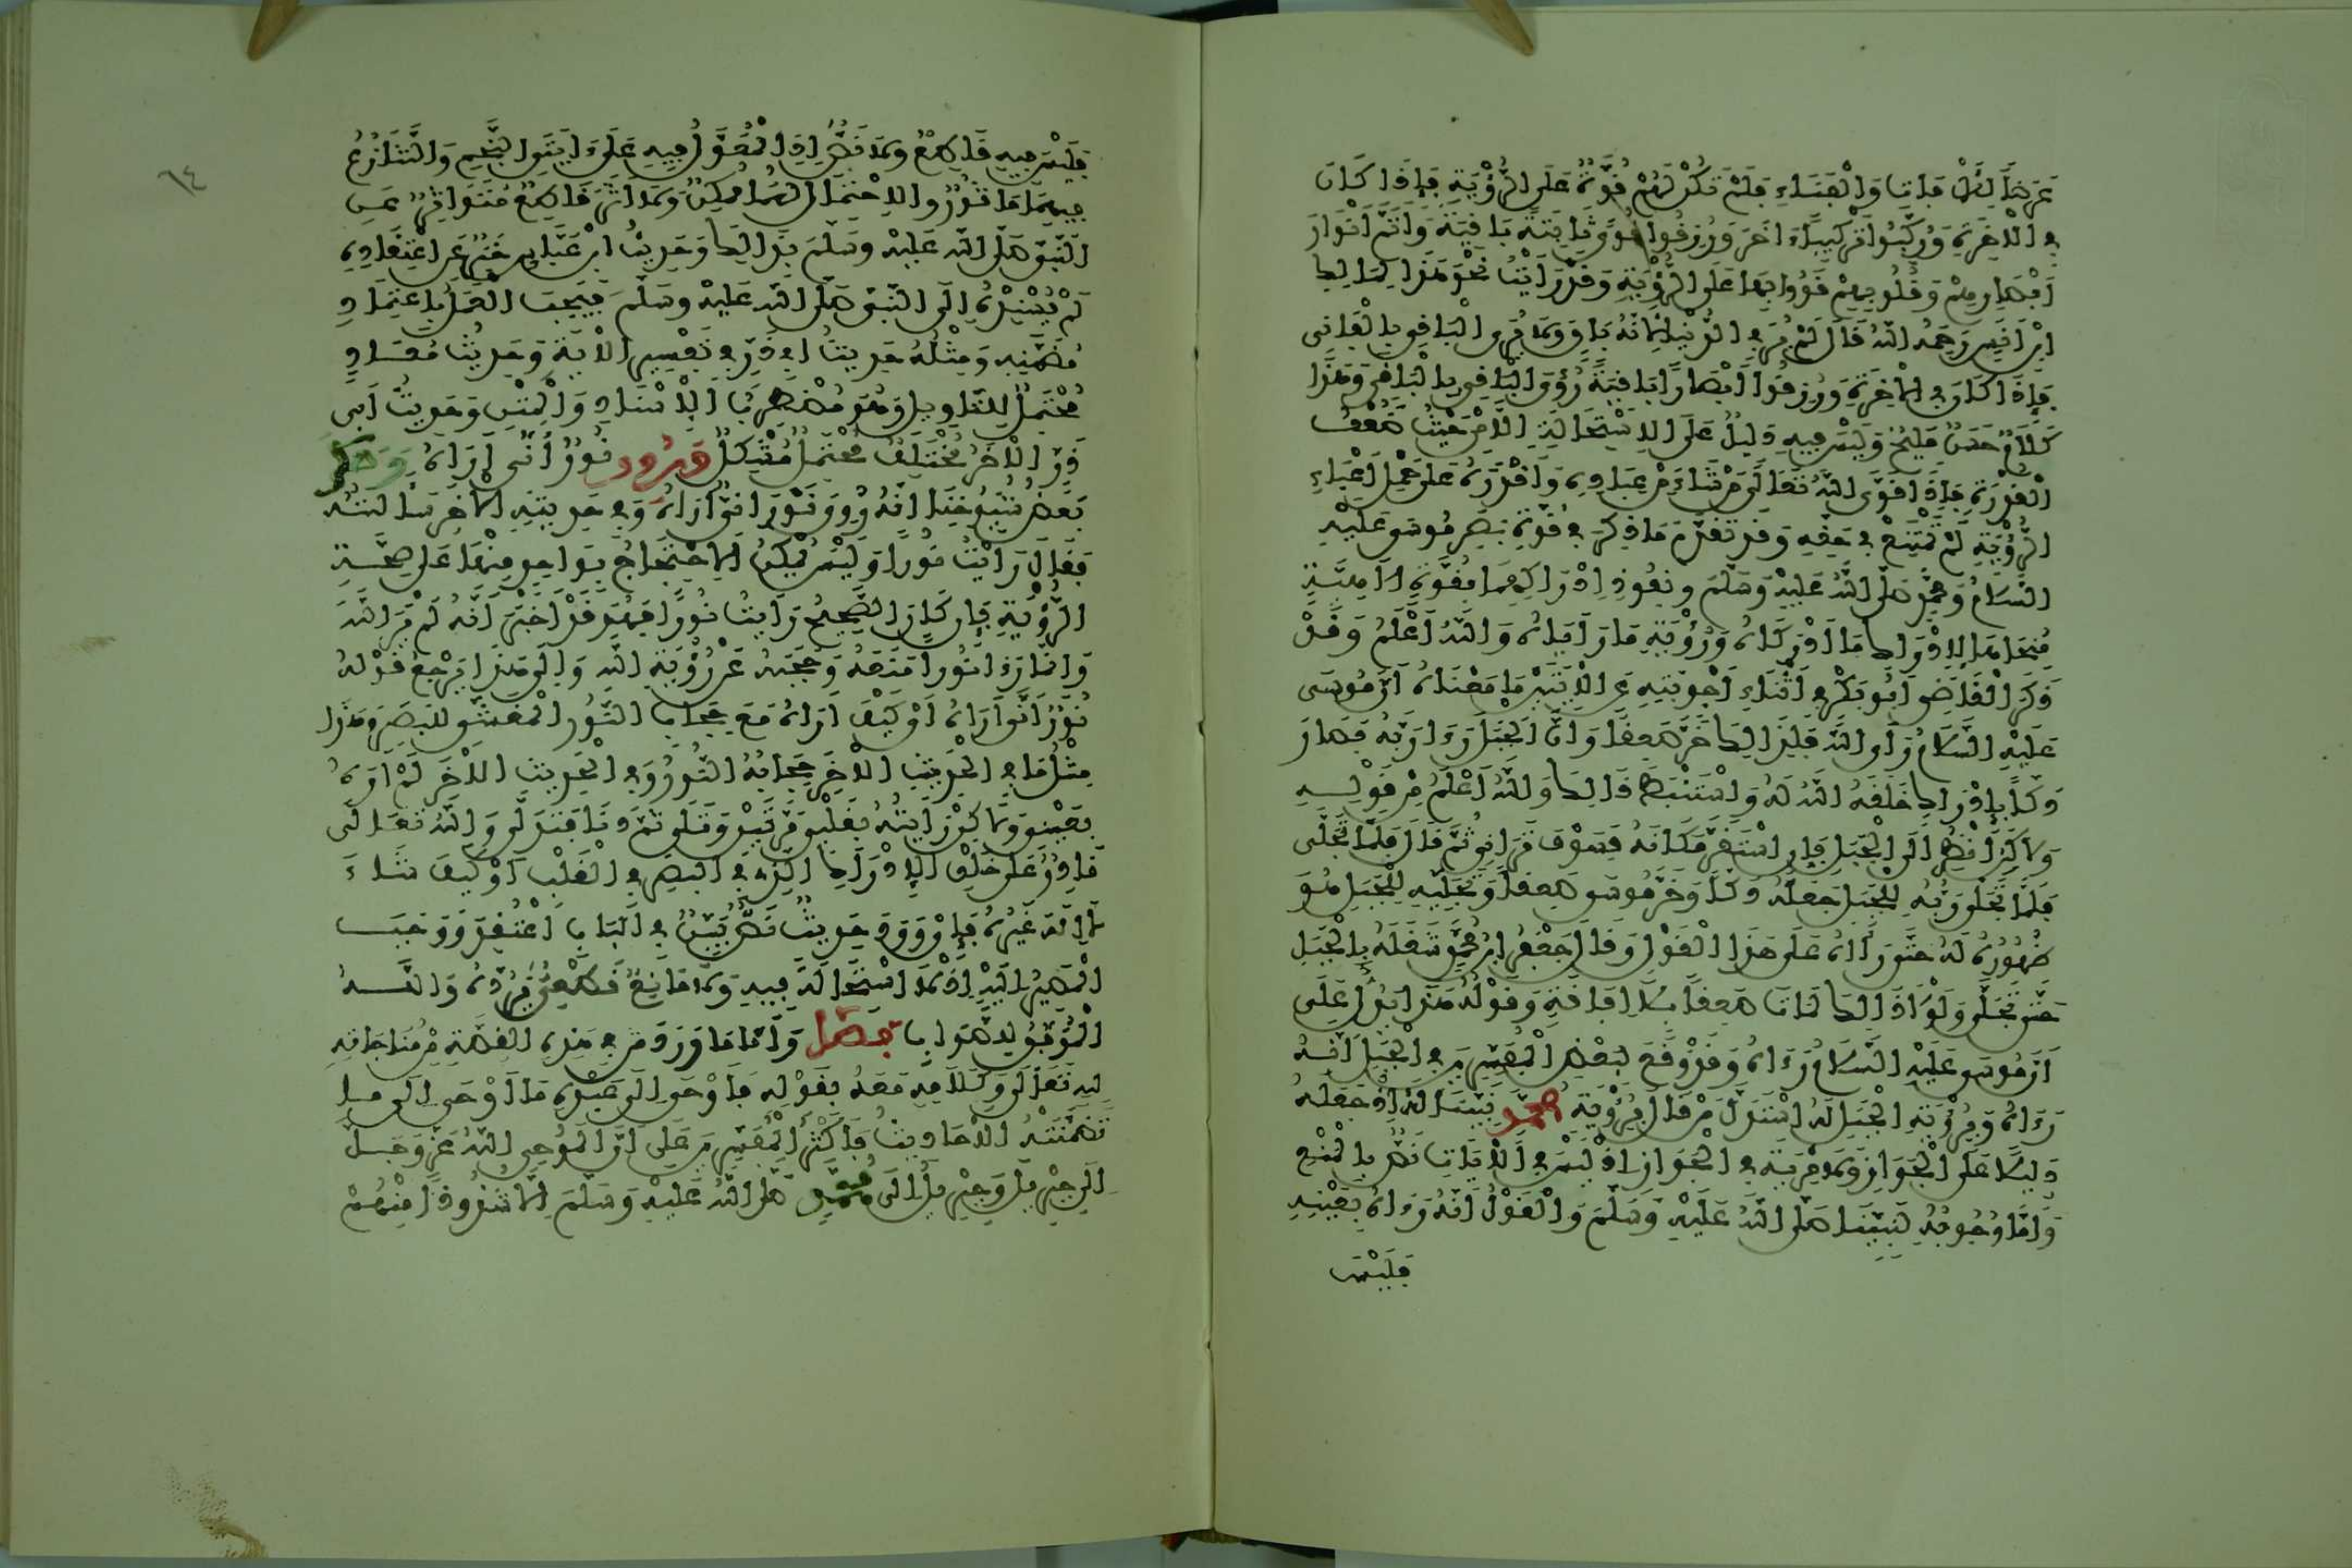 عَرَضًا لِلْآفَاتِ وَالْفَنَاءِ فَلَمْ تَكُنْ لَهُمْ قُوَّةٌ عَلَى الرُّؤْيَةِ فَإِذَا كَانَ
في الآخرة وركبوا تركيبا آخر ورزقوا قوى ثابتة باقية وأتم أنوار
أبصارهم وقلوبهم قووا بها على الرؤية وقد رأيت نحو هذا لمالك
ابن أنس رحمه الله قال لم ير في الدنيا لأنه باق ولا يرى الباقي بالفاني
فإذا كان في الآخرة ورزقوا أبصارا باقية رؤي الباقي بالباقي وهذا
كلام حسن مليح وليس فيه دليل على الاستحالة إلا من حيث ضعف
القدرة فإذا قوى الله تعالى من شاء من عباده وأقدره على حمل أعباء
الرؤية لم تمتنع في حقه وقد تقدم ما ذكر في قوة بصر موسى عليه
السلام ومحمد صلى الله عليه وسلم ونفوذ إدراكهما بقوة إلاهية
منحاها لإدراك ما أدركاه ورؤية ما رأياه والله أعلم وقد
ذكر القاضي أبو بكر في أثناء أجوبته عن الآيتين ما معناه أن موسى
عليه السلام رأى الله فلذلك خر صعقا وأن الجبل رأى ربه فصار
دكا بإدراك خلقه الله له واستنبط ذلك والله أعلم من قوله
ولكن انظر إلى الجبل فإن استقر مكانه فسوف تراني ثم قال فلما تجلى
فلما تجلى ربه للجبل جعله دكا وخر موسى صعقا وتجليه للجبل هو
ظهوره له حتى رآه على هذا القول وقال جعفر بن محمد شغله بالجبل
حتى تجلى ولولا ذلك لمات صعقا بلا إفاقة وقوله هذا يدل على
أن موسى عليه السلام رآه وقد وقع لبعض المفسرين في الجبل أنه
رآه وبرؤية الجبل له استدل من قال برؤية محمد نبينا له إذ جعله
دليلا على الجواز ولا مرية في الجواز إذ ليس في الآيات نص بالمنع
وأما وجوبه لنبينا صلى الله عليه وسلم والقول أنه رآه بعينه
فليس
٦٤
فليس فيه قاطع ولا نص إذ المعول فيه على آيتي النجم والتنازع
فيهما مأثور والاحتمال لهما ممكن ولا أثر قاطع متواتر عن
النبي صلى الله عليه وسلم بذلك وحديث ابن عباس خبر عن اعتقاده
لم يسنده إلى النبي صلى الله عليه وسلم فيجب العمل باعتماد
مضمنه ومثله حديث أبي ذر في تفسير الآية وحديث معاذ
محتمل للتاويل وهو مضطرب الإسناد والمتن وحديث أبي
ذر الآخر مختلف محتمل مشكل فروي نور أنى أراه وحكى
بعض شيوخنا أنه روي نوراني أراه وفي حديثه الآخر سألته
فقال رأيت نورا وليس يمكن الاحتجاج بواحد منهما على صحة
الرؤية فإن كان الصحيح رأيت نورا فهو قد أخبر أنه لم ير الله
وإنما رأى نورا منعه وحجبه عن رؤية الله وإلى هذا يرجع قوله
نور أنى أراه أو كيف أراه مع حجاب النور المغشي للبصر وهذا
مثل ما في الحديث الآخر حجابه النور وفي الحديث الآخر لم أره
بعيني ولكن رأيته بقلبي مرتين وتلى ثم دنا فتدلى والله تعالى
قادر على خلق الإدراك الذي في البصر في القلب أو كيف شاء
لا إله غيره فإن ورد حديث نص بين في الباب اعتقد ووجب
المصير إليه إذ لا استحالة فيه ولا مانع قطعي يرده والله
الموفق للصواب فصل وأما ما ورد في هذه القصة من مناجاته
لله تعالى وكلامه معه بقوله فأوحى إلى عبده ما أوحى إلى ما
تضمنته الأحاديث فأكثر المفسرين على أن الموحي الله عز وجل
إلى جبريل وجبريل إلى محمد صلى الله عليه وسلم إلا شذوذا منهم